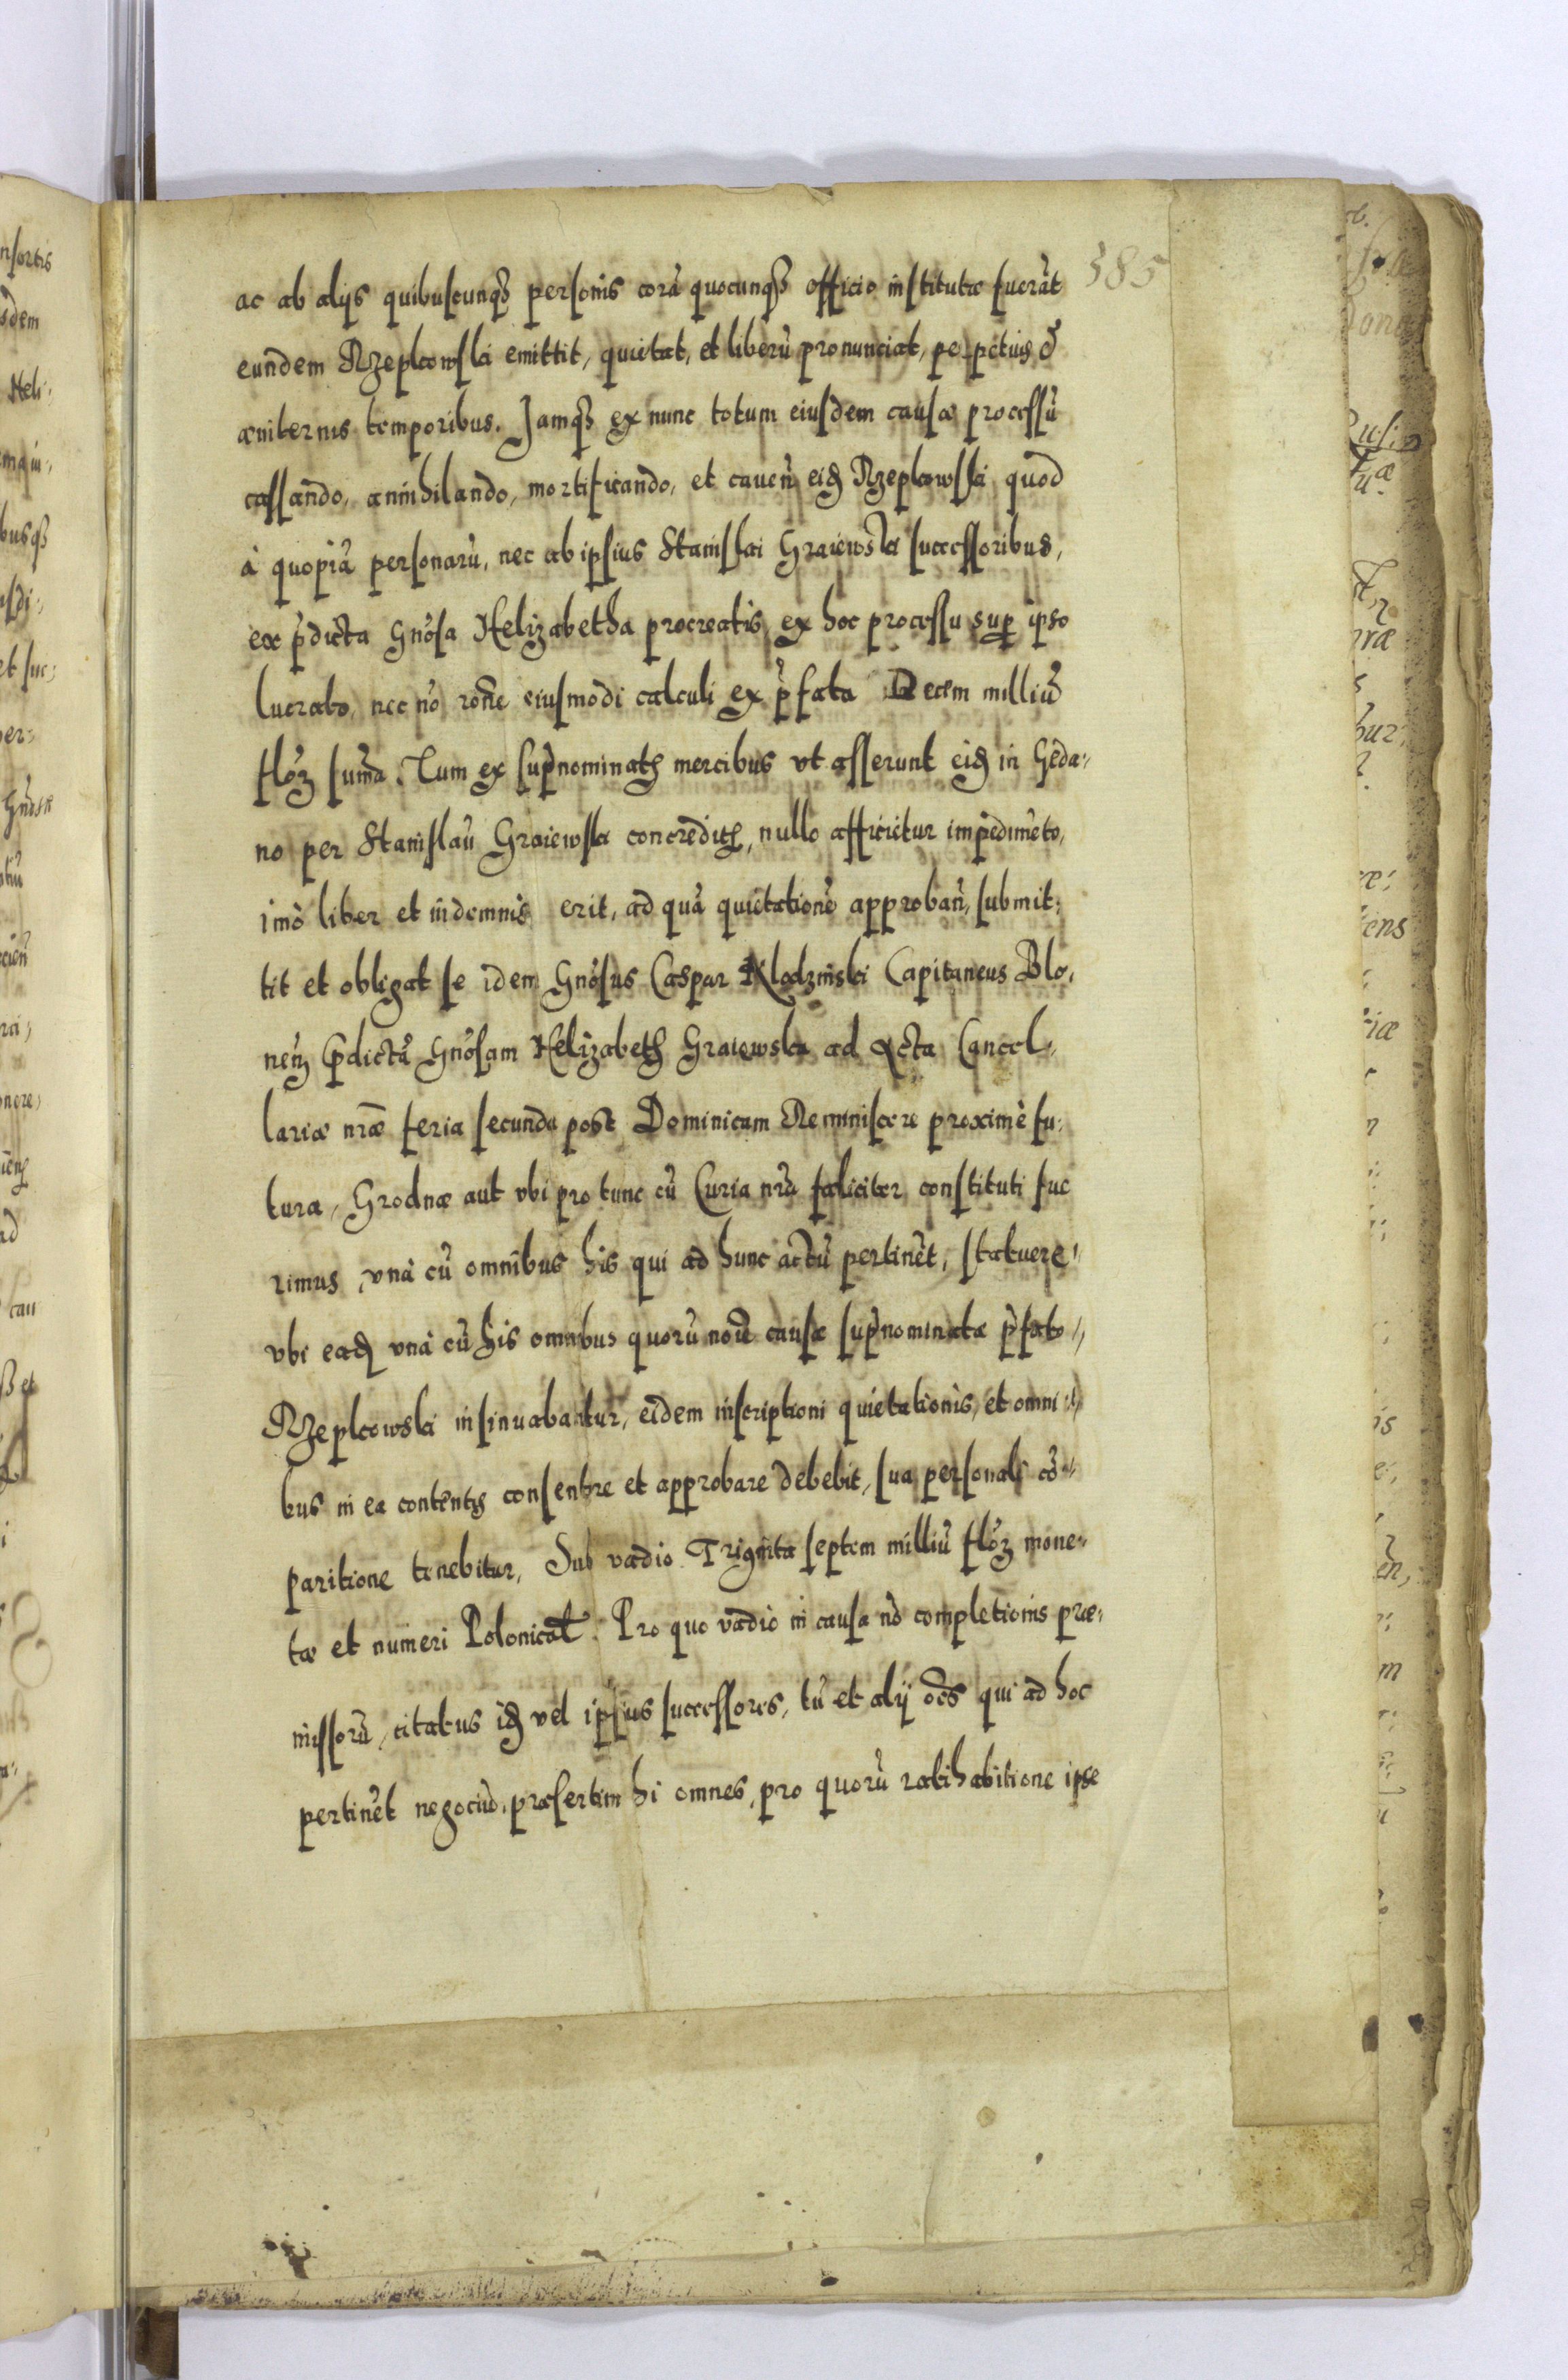 385
ac ab alijs quibuscunqȝ personis corā quocunqȝ officio institutæ fuerāt
eundem Rzepkowski emittit, quietat, et liberū pronunciat, perpetuis &
æuiternis temporibus. Jamqȝ ex nunc totum eiusdem causæ processū
cassando, annihilando, mortificando, et cauen̄ eid̨ Rzepkowski quod
à quopiā personarū, nec ab ipsius Stanislai Graiewski successoribus,
ex p̄dicta Gn̄osa Helizabetha procreatis, ex hoc processu sup̱ ipso
lucrato, nec nō rōne eiusmodi calculi ex p̄fata Decem milliū
flōꝝ sum̄a. Tum ex sup̄nominatꝭ mercibus vt asserunt eid̨ in Geda-
no per Stanislaū Graiewski concreditꝭ, nullo afficietur impedimēto,
imò liber et indemnis erit, ad quā quietationē approban̄, submit-
tit et obligat se idem Gn̄osus Caspar Klodzinski Capitaneus Blo-
nen̄ p̄dictā Gn̄osam Helizabetꝭ Graiewska ad Acta Cancel-
lariæ nr̄æ feria secunda post Dominicam Reminiscere proximè fu-
tura, Grodnæ aut vbi pro tunc cū Curia nr̄a fæliciter constituti fue
rimus, vnà cū omnibus his qui ad hunc actū pertinēt, statuere,
vbi ead̨ vnà cū his omnibus quorū noīe causæ sup̄nominatæ p̄fato
Rzepkowski insinuabantur, eidem inscriptioni quietationis, et omni-
bus in ea contentis consentire et approbare debebit, sua personali cō-
paritione tenebitur, Sub vadio Triginta septem milliū flōꝝ mone-
tæ et numeri Polonicał. Pro quo vadio in causa nō completionis præ-
missorū, citatus id̨ vel ipsius successores, tū et alij oēs qui ad hoc
pertinēt negociū, præsertim hi omnes, pro quorū ratihabitione ipse